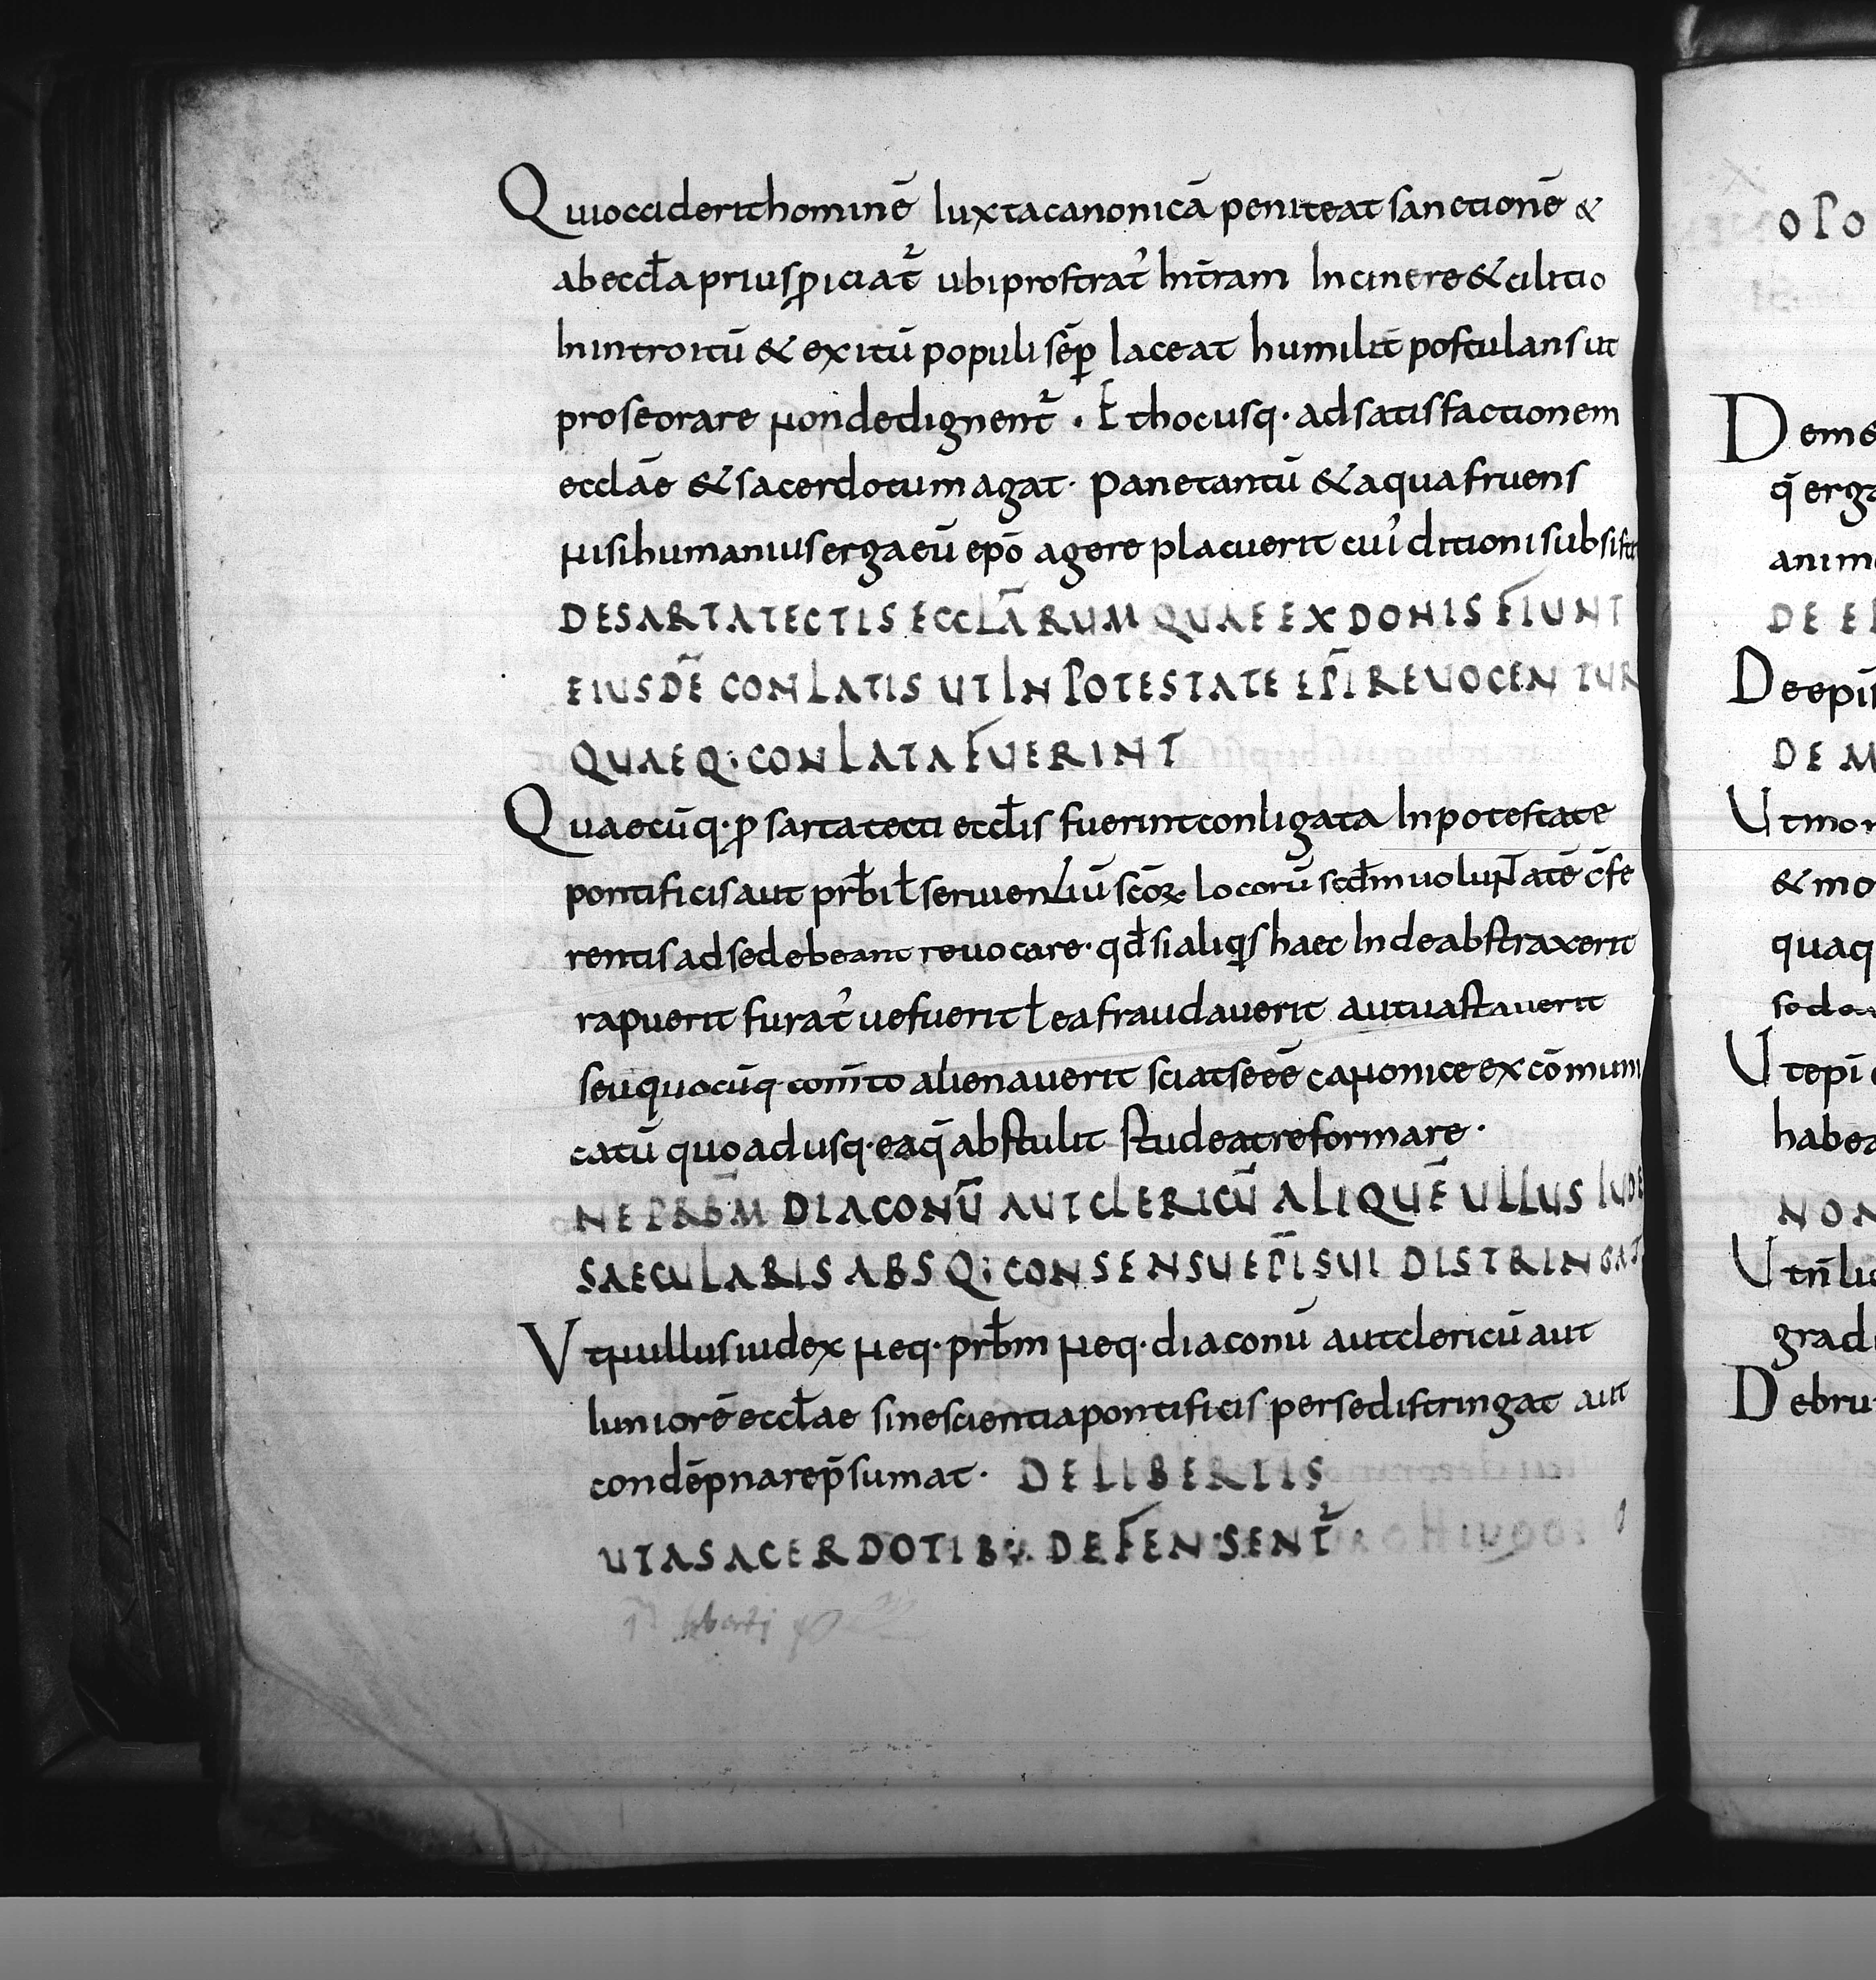 Qui occiderit hominē Iuxta canonicā peniteat sanctionē &
ab eccƚa prius ꝓiciat᷑ ubi prostrat᾽ In t̄ram In cinere & cilicio
In introitū & exitū populi sēꝑ Iaceat humilit̄ postulans ut
pro se orare non dedignent᷑ . Et hoc usq· ad satisfactionem
eccłāe & sacerdotum agat· Pane tantū & aqua fruens
nisi humanius erga eū epō agere placuerit cui᾽ dicioni subsistit
DE SARTATECTIS ECCLĀRUM QUAE EX DONIS FIUNT
EIUSDĒ CONLATIS UT IN POTESTATE EPĪ REUOCENTUR
QUAEQ: CONLATA FUERINT
Quaecūq· ꝓ sartatecti eccƚis fuerint conligata In potestate
pontificis aut prƀi ƚ seruientiū scōꝝ· locorū scđm uoluptatē c̄fe
rentis ad se debeant reuocare· qđ si aliqis haec Inde abstraxerit
rapuerit furat᾽ ue fuerit ƚ ea fraudauerit aut uastauerit
seu quocūq com̄to alienauerit sciat se eē canonice excōmuni
catū quoadusq· ea q̄ abstulit studeat reformare·
NE PRBM̄ DIACONŪ AUT CLERICŪ ALIQUĒ ULLUS IUDE
SAECULARIS ABSQ: CONSENSU EPĪ SUI DISTRINGAT
Vt nullus iudex neq· prƀm neq· diaconū aut clericū aut
Iuniorē eccƚae sine scientia pontificis per se distringat aut
condēpnare p̄sumat· DE LIBERTIS
UT A SACERDOTIBU· DEFENSENT᷑
OPO
Deme
q̄ erga
anim
DE E
De epis
DE M
Ut mon
& mo
quaq
sede
Ut epī
habea
NON
Ut n̄ li
gradu
De bru